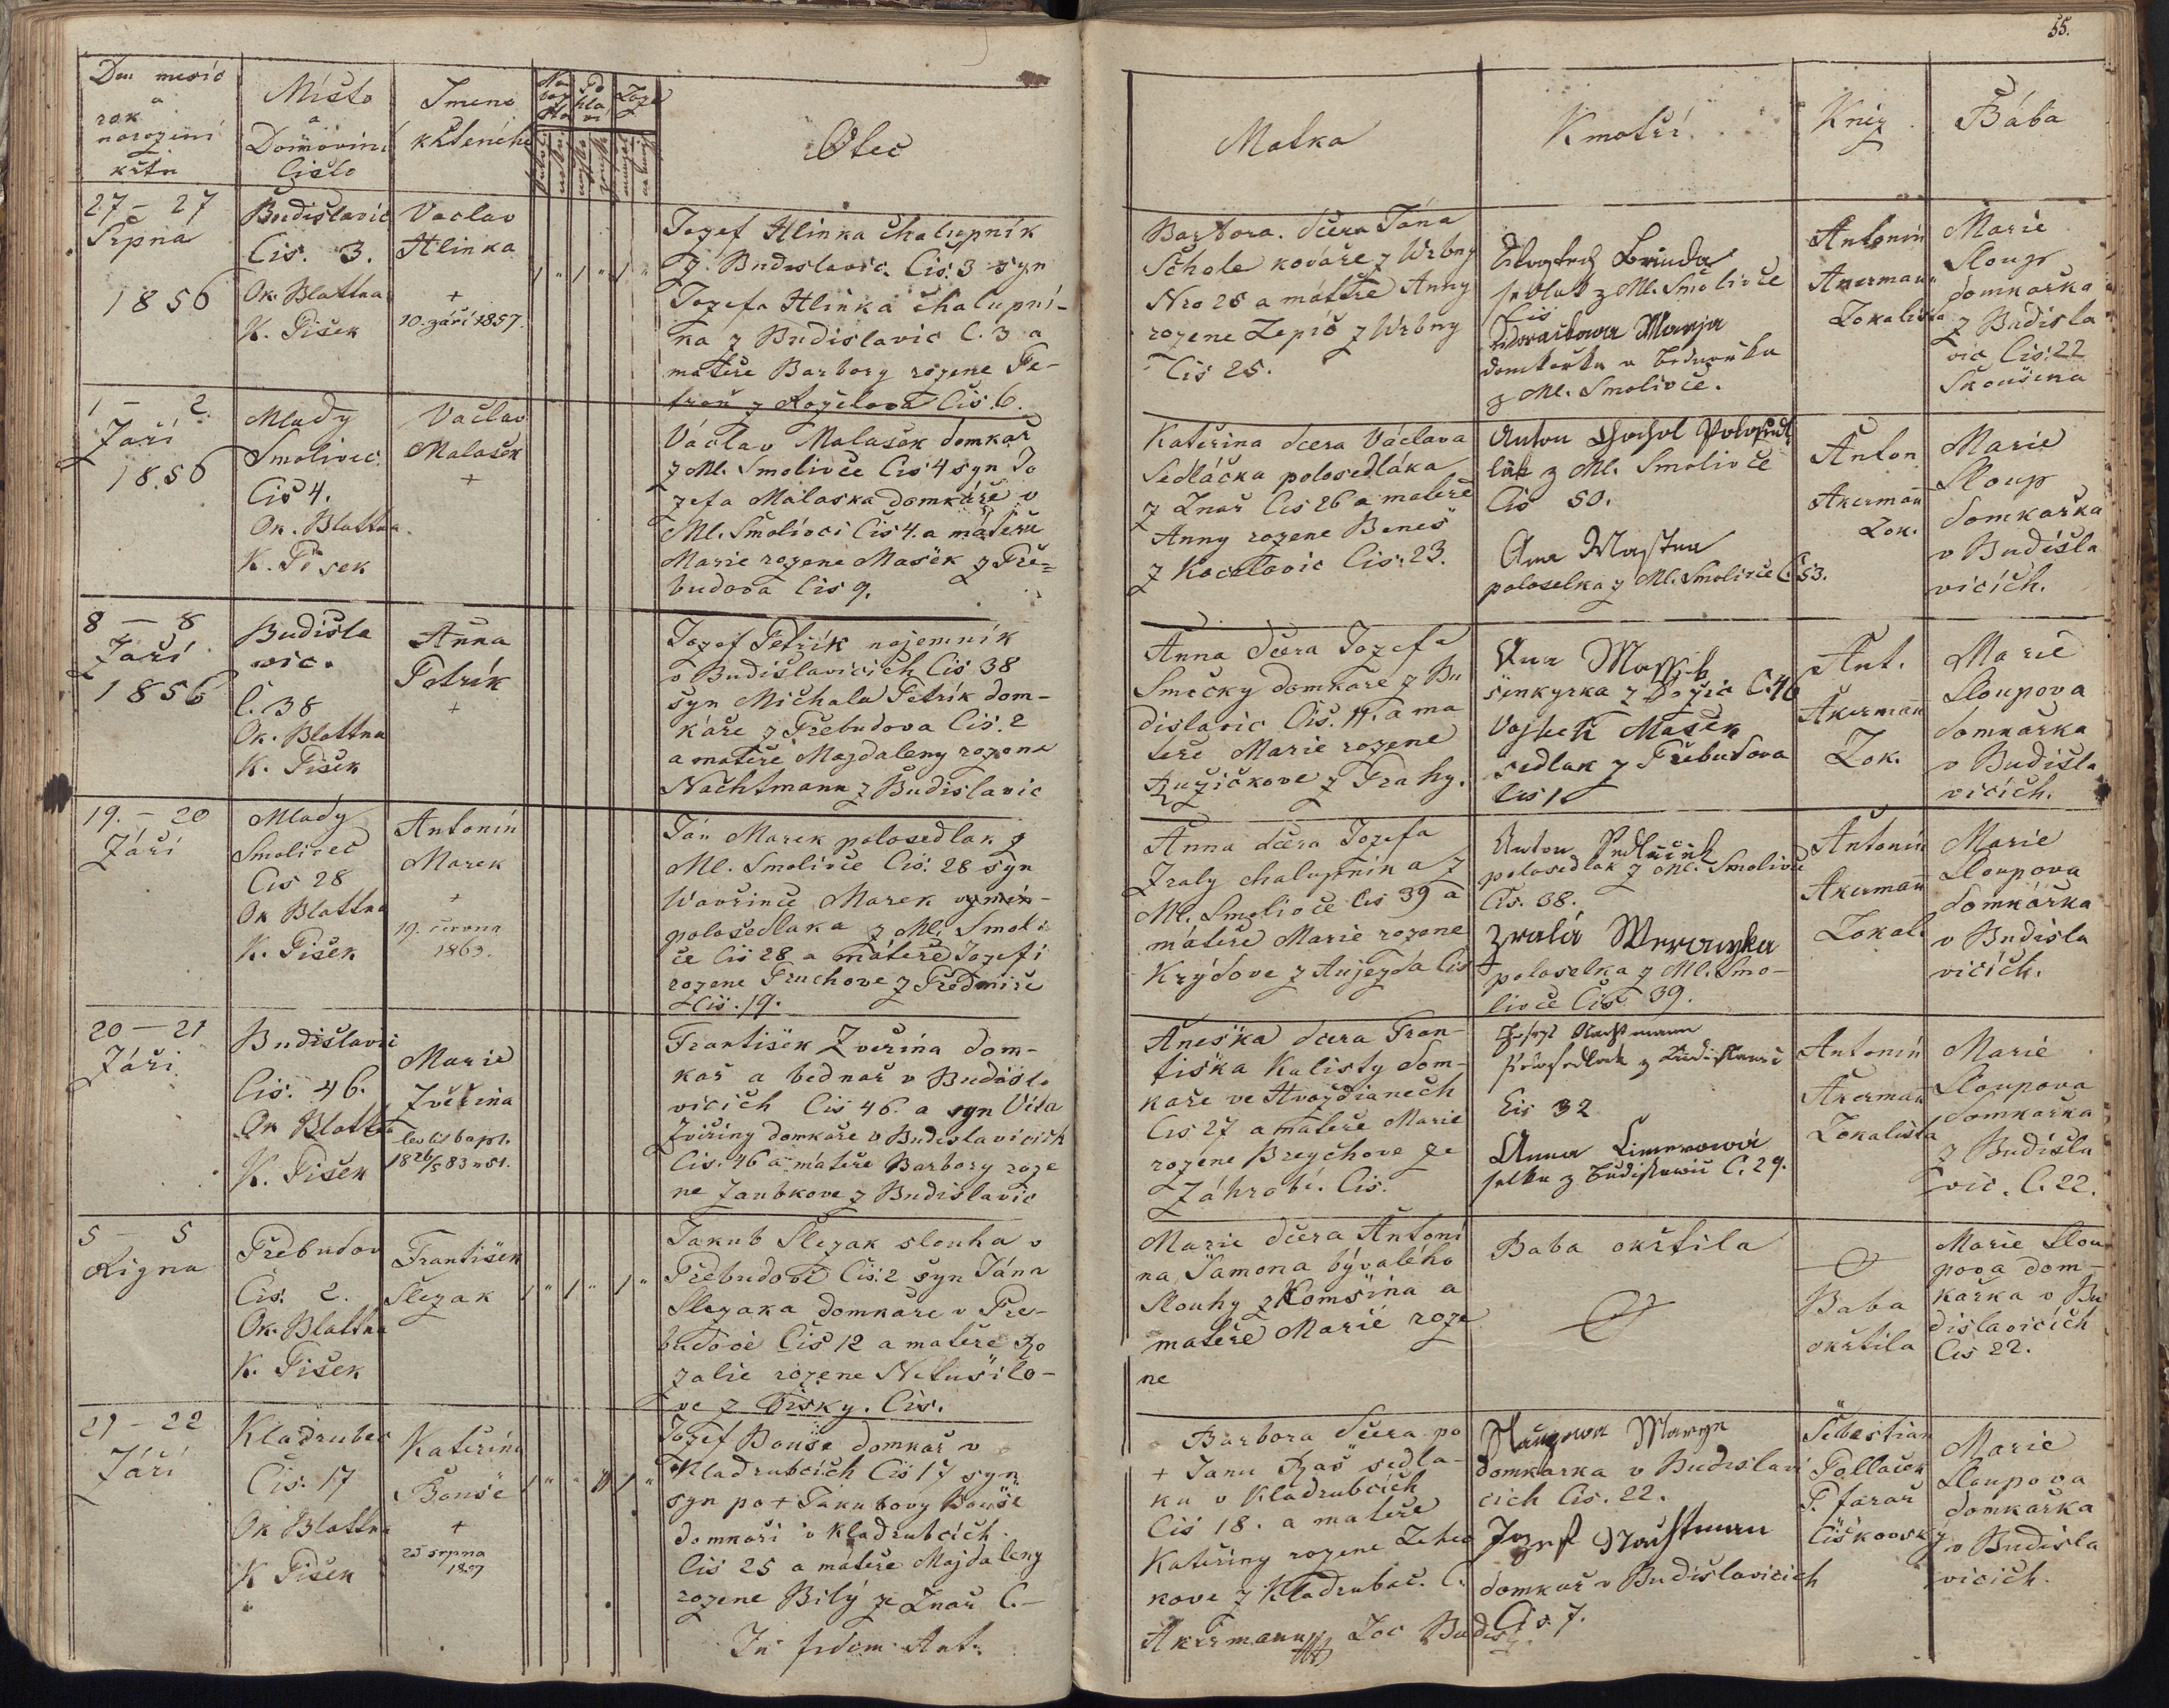 55.
Den mesíc
a
rok
narozeni
křtu
Místo
a
Domovini
Cislo
Imeno
křteniho
Otec
Matka
Kmotři
Kněz
Bába
27 – 27
Srpna
1856
Budislavic
Cis. 3.
Ok. Blattna
K. Pisek
Vaclav
Hlinka
+
10. září 1857.
Jozef Hlinka chalupník
z Budislavic. Cis. 3 syn
Jozefa Hlinka chalupní-
ka z Budislavic C. 3 a
mateře Barbory rozene Pe-
z Rozelova Cis. 6.
Barbora. dcera Jána
kováře z Wrbny
Nro 25 a mateře Anny
rozene Lepič z Wrbny
Cis 25.
sedlak z Ml. Smolivce
Cis
Marya
domkařka a
z Ml. Smolivce.
Antonin
Akerman
Lokalista
Marie
Sloup
domkařka
z Budisla
vic Cis. 22
1 – 2.
Září
1856
Mlady
Smolivec
Cis 4.
Ok. Blattna
K. Pisek
Vaclav
Malašek
+
Václav Malašek domkař
z Ml. Smolivce Cis 4 syn Jo
zefa Malaska domkáře v
Ml. Smolivci Cis 4. a mateře
Marie rozene Mašek z Pře-
budova Cis 9.
Kateřina dcera Václava
Sedláčka polosedláka
z Lnař Cis 26 a mateře
Anny rozene Beneš
z Kocelovic Cis. 23.
Anton Chochol
lák z Ml. Smolivce
Cis 50.
Ana
poloselka z Ml. Smolivce C. 53.
Anton
Akerman
Lok.
Marie
Sloup
domkařka
v Budisla
vicích.
8 – 8
Září
1856
Budisla
vic.
C. 38
Ok. Blattna
K. Pisek
Anna
Petrík
+
Jozef Petrík nojemník
v Budislavicich Cis 38
syn Michala Petrík dom-
káře z Přebudova Cis. 2
a mateře Majdaleny rozene
Nachtmann z Budislavic
Anna dcera Jozefa
Smečky domkare z Bu
dislavic Cis. 11. a ma
teře Marie rozene
Ružičkove z Prahy.
šenkyrka z C. 46
Vojtech Mašek
sedlak z Přebudova
Cis 1.
Ant.
Akerman
Lok.
Marie
Sloupova
domkařka
v Budisla
vicích.
19. – 20
Září
Mlady
Smolivec
Cis 28
Ok Blattna
K. Pisek
Antonín
Marek
+
19. června
1863.
Ján Marek polosedlak z
Ml. Smolivce Cis. 28 syn
Wavřince Marek
polosedlaka z Ml. Smoli
če Cis 28 a mateře Jozefi
rozene Pruchove z Předmiře
Cis. 19.
Anna dcera Jozefa
Zraly chalupnika z
Ml. Smolivce Cis 39 a
mateře Marie rozene
Krýdove z Aujezda Cis
Anton Sedlaček
polosedlak z Ml. Smolivce
Cis. 38.
Zralá Weronyka
poloselka z Ml. Smo-
livce Cis 39.
Antonin
Akerman
Lokal.
Marie
Sloupova
domkařka
v Budisla
vicích.
20 – 21
Září
Budislavic
Cis. 46.
Ok Blattna
K. Pisek
Marie
Zvěřina
František Zvěřina dom-
kař a bednař v Budisla
vicich Cis 46. a syn Víta
Zvěřiny domkaře v Budislavicich
Cis. 46 a mateře Barbory roze
ne Zaubkove z Budislavic
Aneška dcera Fran-
tiška Kalisty dom-
kaře ve Hvoždianech
Cis 27 a mateře Marie
rozene Breychove ze
Záhrobí. Cis.
Josef Nachtmann
Cis 32
Anna
selka z Budislawic C. 29.
Antonin
Akerman
Lokalista
Marie
Sloupova
domkařka
z Budisla
vic. C. 22.
5 – 5
Řigna
Přebudov
Cis. 2.
Ok. Blattna
K. Pisek
František
Slezak
Jakub Slezak slouha v
Přebudově Cis. 2 syn Jána
Slezaka domkaře v Pře-
budově Cis 12 a mateře Ro
zalie rozene Netušilo-
ve z Cis.
Marie dcera Antoni
na Jamona bývalého
Slouhy z a
mateře Marie roze
ne
Baba okřtila
Baba
okřtila
Marie Slou
pova dom-
kařka v Bu
dislavicích
Cis 22.
21 – 22
Září
Kladrubec
Cis. 17
Ok Blattna
K Pisek
Kateřina
Bouše
+
25 srpna
Jozef Bouše domkař v
Kladrubcich Cis 17 syn
syn po + Jakubovy Bouše
domkaři v Kladrubcích
Cis 25 a mateře Majdaleny
rozene Bilý ze Lnař C. –
In fidem Ant.
Barbora dcera po
+ Janu Raš sedla-
ku v Kladrubcich
Cis 18. a mateře
Kateřiny rozene
kove z Kladrubec. C.
Akermann Loc Budis.
Marya
domkarka v Budislavi
cich Cis. 22.
Jozef Nachtman
domkař v Budislavicich
Cis 7.
Sebestian
Pollaček
P. farař
Marie
Sloupova
domkařka
v Budisla
vicich.